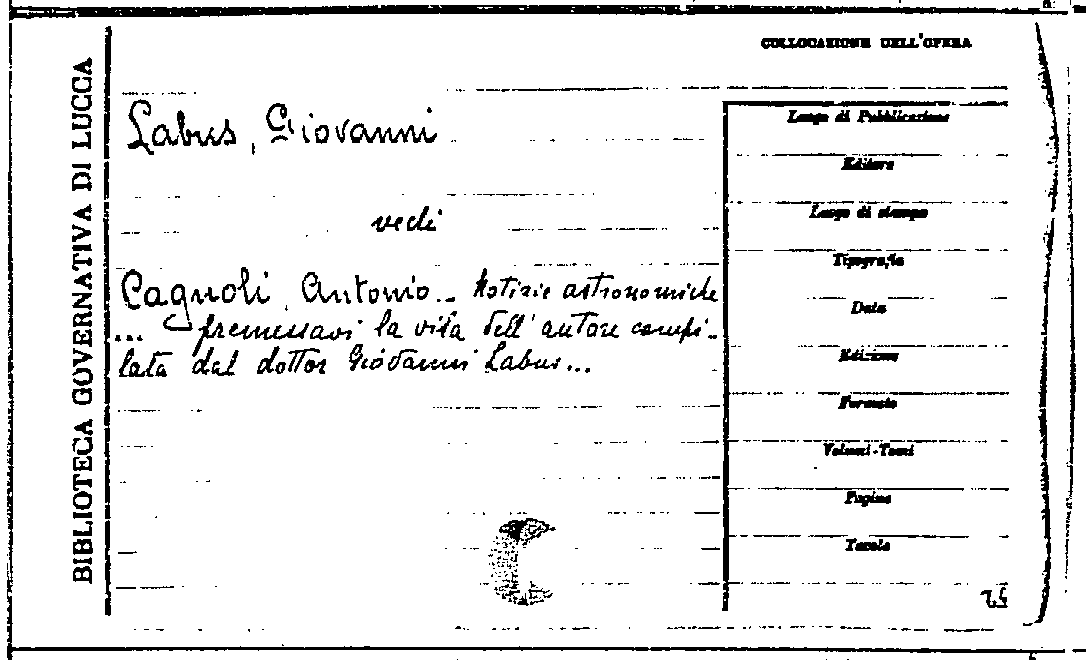 BIBLIOTECA GOVERNATIVA DI LUCCA
COLLOCAZIONE DELL'OPERA
Labus, Giovanni
vedi
Cagnoli, Antonio.. Notizie astronomiche
... premessavi la vita dell'autore compi-
lata dal dottor Giovanni Labus...
Luogo di Pubblicazione
Editore
Luogo di stampa
Tipografia
Data
Edizione
Formato
Volumi-Tomi
Pagine
Tavole